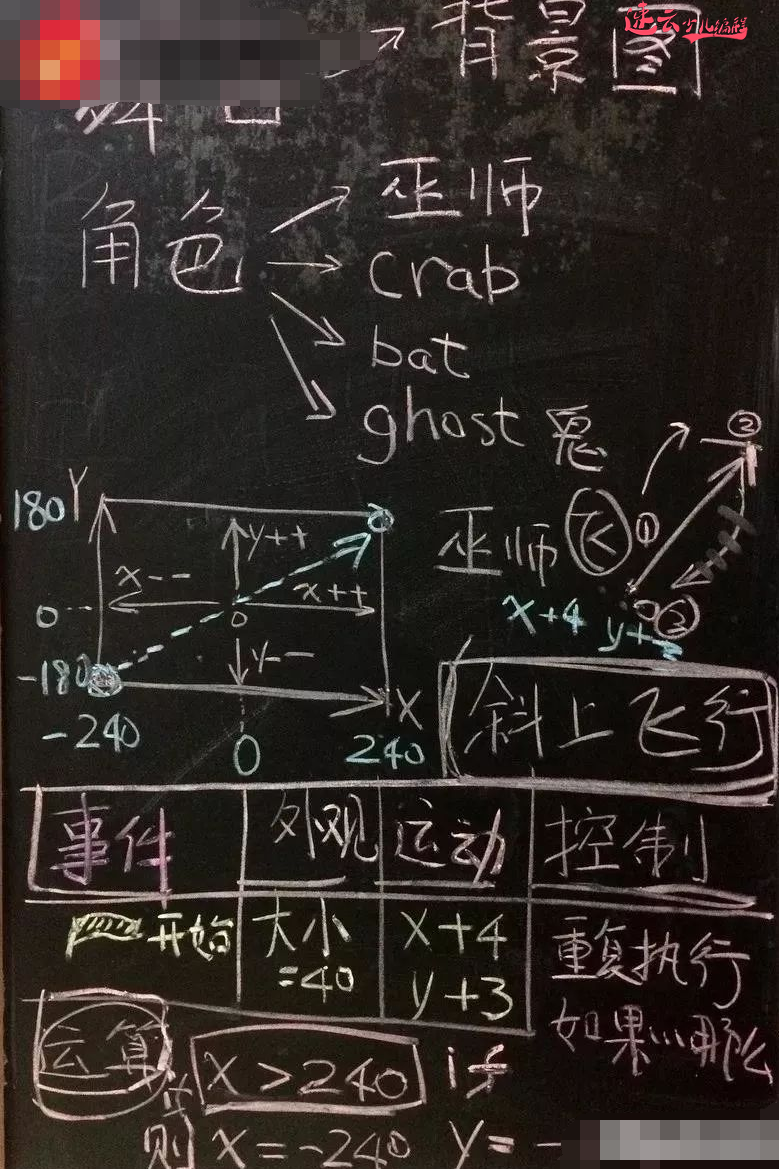 速云少儿编程
背景图
角色
巫师
crab
bat
ghost 鬼
②
①
巫师 飞
③
x+4 y+3
180 Y
y++
x--
x++
0
0
y--
-180
X
-240
0
240
斜上飞行
事件 外观 运动 控制
开始 大小=40 x+4 y+3 重复执行
如果…那么
运算
x>240 if
则 x=-240 y=-